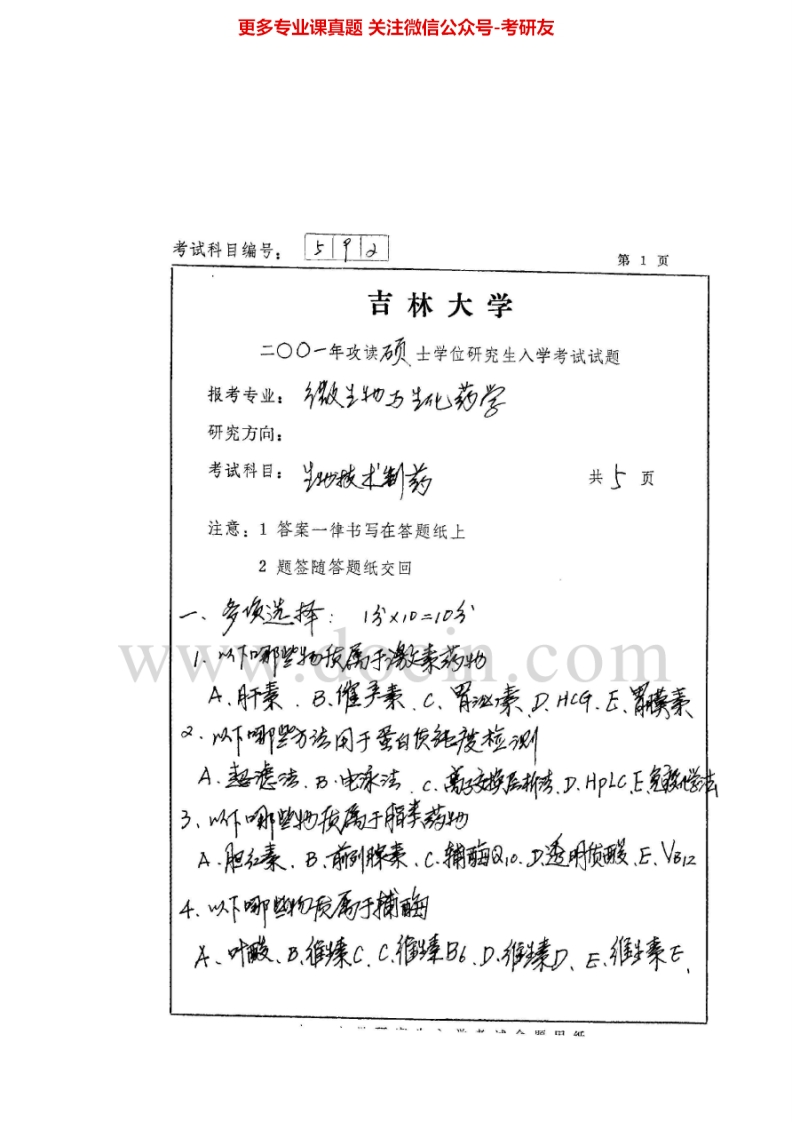 更多专业课真题 关注微信公众号-考研友
考试科目编号： 592
第 1 页
吉林大学
二〇〇一年攻读硕士学位研究生入学考试试题
报考专业：微生物与生化药学
研究方向：
考试科目：生物技术制药 共 5 页
注意：1 答案一律书写在答题纸上
2 题签随答题纸交回
一、多项选择： 1分×10=10分
www.docin.com
1. 以下哪些物质属于激素药物
A、肝素、B、维生素、C、胃泌素、D、HCG、E、胃膜素
2、以下哪些方法用于蛋白质纯度检测
A、超滤法、B、电泳法、C、离子交换层析法、D、HPLC、E、免疫化学法
3、以下哪些物质属于脂类药物
A、胆红素、B、前列腺素、C、辅酶Q10、D、透明质酸、E、VB12
4、以下哪些物质属于辅酶
A、叶酸、B、维生素C、C、维生素B6、D、维生素D、E、维生素E、